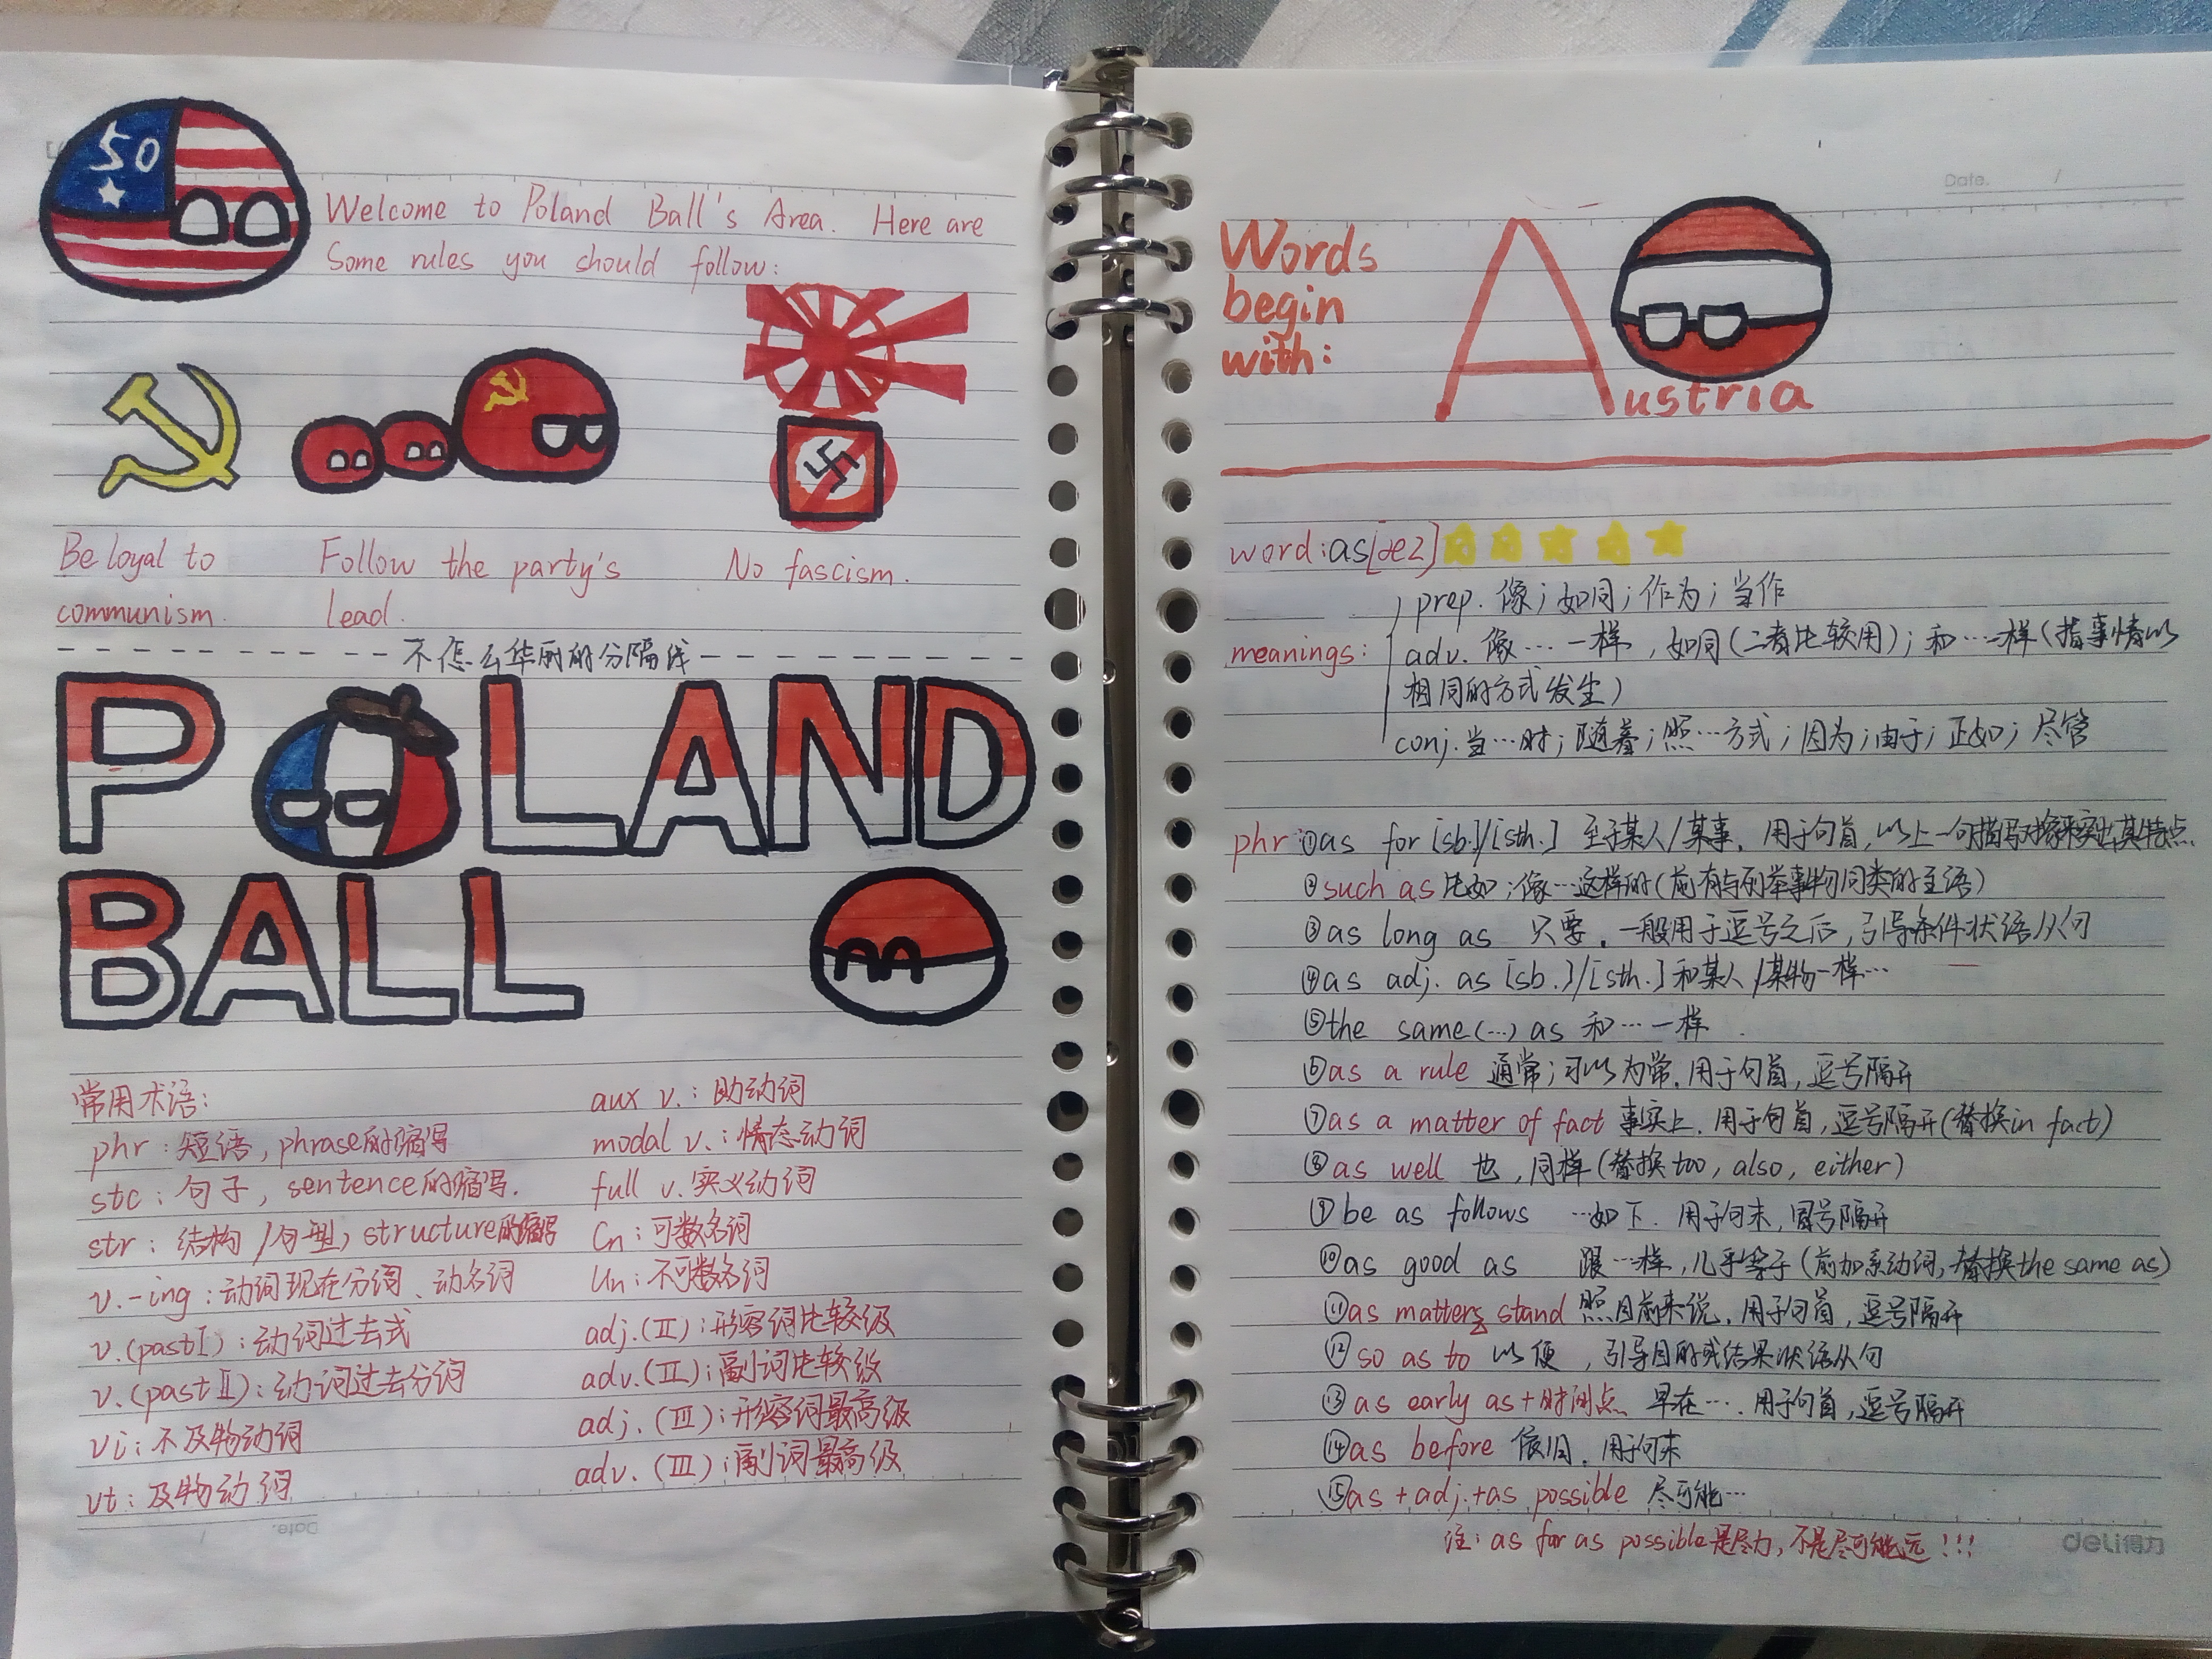 50
Welcome to Poland Ball's Area. Here are
Some rules you should follow:
Be loyal to
communism.
Follow the party's
lead.
No fascism.
不怎么华丽的分隔线
POLAND
BALL
常用术语:
phr: 短语, phrase的缩写
stc: 句子, sentence的缩写.
str: 结构/句型, structure的缩写
v.-ing: 动词现在分词、动名词
v.(past I): 动词过去式
v.(past II): 动词过去分词
vi: 不及物动词
vt: 及物动词
aux v.: 助动词
modal v.: 情态动词
full v. 实义动词
Cn: 可数名词
Un: 不可数名词
adj.(II): 形容词比较级
adv.(II): 副词比较级
adj.(III): 形容词最高级
adv.(III): 副词最高级
Date. /
Words
begin
with:
Austria
word: as[æz]
meanings:
prep. 像; 如同; 作为; 当作
adv. 像…一样, 如同(二者比较用); 和…一样(指事情以
相同的方式发生)
conj. 当…时; 随着; 照…方式; 因为; 由于; 正如; 尽管
phr ①as for [sb.]/[sth.] 至于某人/某事. 用于句首, 以上一句描写对象来突出其特点.
②such as 比如; 像…这样的(前有与列举事物同类的主语)
③as long as 只要. 一般用于逗号之后, 引导条件状语从句
④as adj. as [sb.]/[sth.] 和某人/某物一样…
⑤the same(…) as 和…一样.
⑥as a rule 通常; 习以为常. 用于句首, 逗号隔开
⑦as a matter of fact 事实上. 用于句首, 逗号隔开(替换in fact)
⑧as well 也, 同样(替换too, also, either)
⑨be as follows …如下. 用于句末, 冒号隔开
⑩as good as 跟…一样, 几乎等于(前加系动词, 替换the same as)
⑪as matters stand 照目前来说. 用于句首, 逗号隔开
⑫so as to 以便, 引导目的或结果状语从句
⑬as early as+时间点 早在…. 用于句首, 逗号隔开
⑭as before 依旧. 用于句末
⑮as+adj.+as possible 尽可能…
注: as far as possible是尽力, 不是尽可能远!!!
deli得力
Date. /